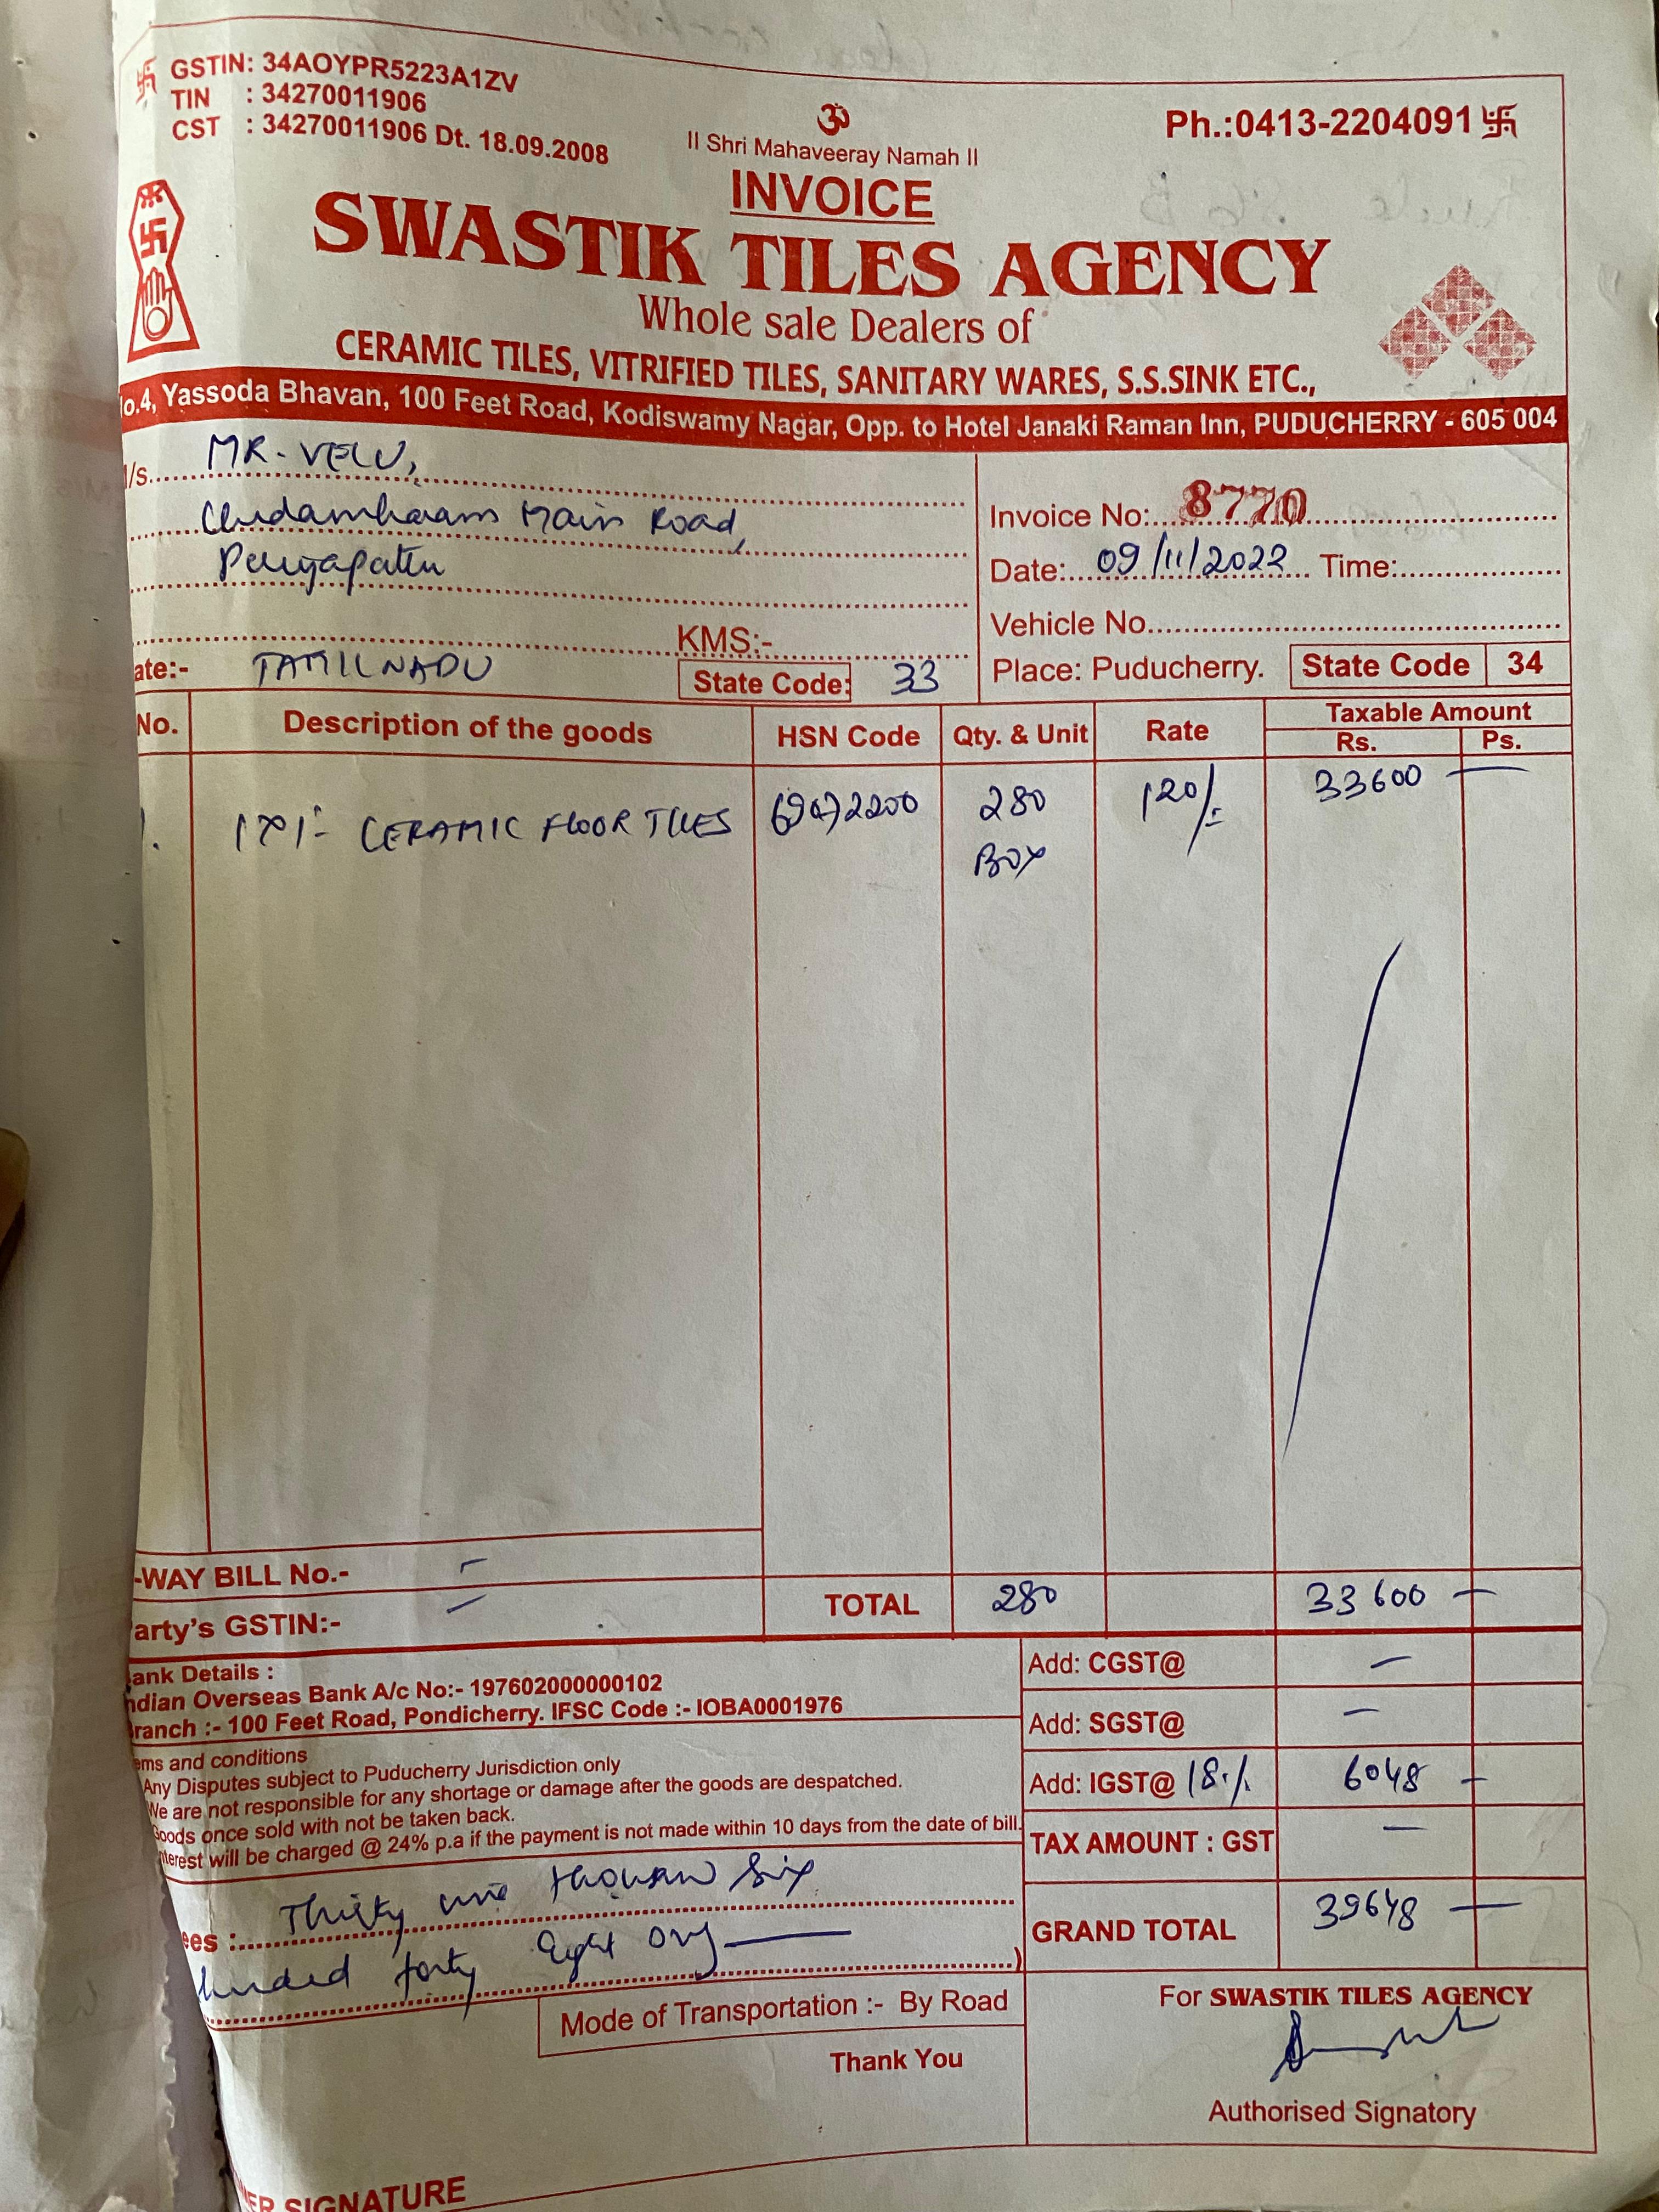 GSTIN: 34AOYPR5223A1ZV
TIN : 34270011906
CST : 34270011906 Dt. 18.09.2008
ॐ
Ph.:0413-2204091
II Shri Mahaveeray Namah II
INVOICE
SWASTIK TILES AGENCY
Whole sale Dealers of
CERAMIC TILES, VITRIFIED TILES, SANITARY WARES, S.S.SINK ETC.,
o.4, Yassoda Bhavan, 100 Feet Road, Kodiswamy Nagar, Opp. to Hotel Janaki Raman Inn, PUDUCHERRY - 605 004
/s. MR. VELU,
Chidamharam Main Road,
Periyapattu
KMS:-
ate:- TAMILNADU State Code: 33
Invoice No: 8770
Date: 09/11/2022 Time:
Vehicle No.
Place: Puducherry. State Code 34
No. Description of the goods HSN Code Qty. & Unit Rate Taxable Amount
Rs. Ps.
1. 1x1:- CERAMIC FLOOR TILES 2200 280 120/= 33600 —
BOX
-WAY BILL No.- -
arty's GSTIN:- - TOTAL 280 33600 —
ank Details :
ndian Overseas Bank A/c No:- 197602000000102
ranch :- 100 Feet Road, Pondicherry. IFSC Code :- IOBA0001976
ems and conditions
Any Disputes subject to Puducherry Jurisdiction only
We are not responsible for any shortage or damage after the goods are despatched.
Goods once sold with not be taken back.
nterest will be charged @ 24% p.a if the payment is not made within 10 days from the date of bill.
Add: CGST@ —
Add: SGST@ —
Add: IGST@ 18% 6048 —
TAX AMOUNT : GST —
GRAND TOTAL 39648 —
ees : Thirty nine thousan Six
hunded forty eight only —)
Mode of Transportation :- By Road
Thank You
For SWASTIK TILES AGENCY
Authorised Signatory
ER SIGNATURE